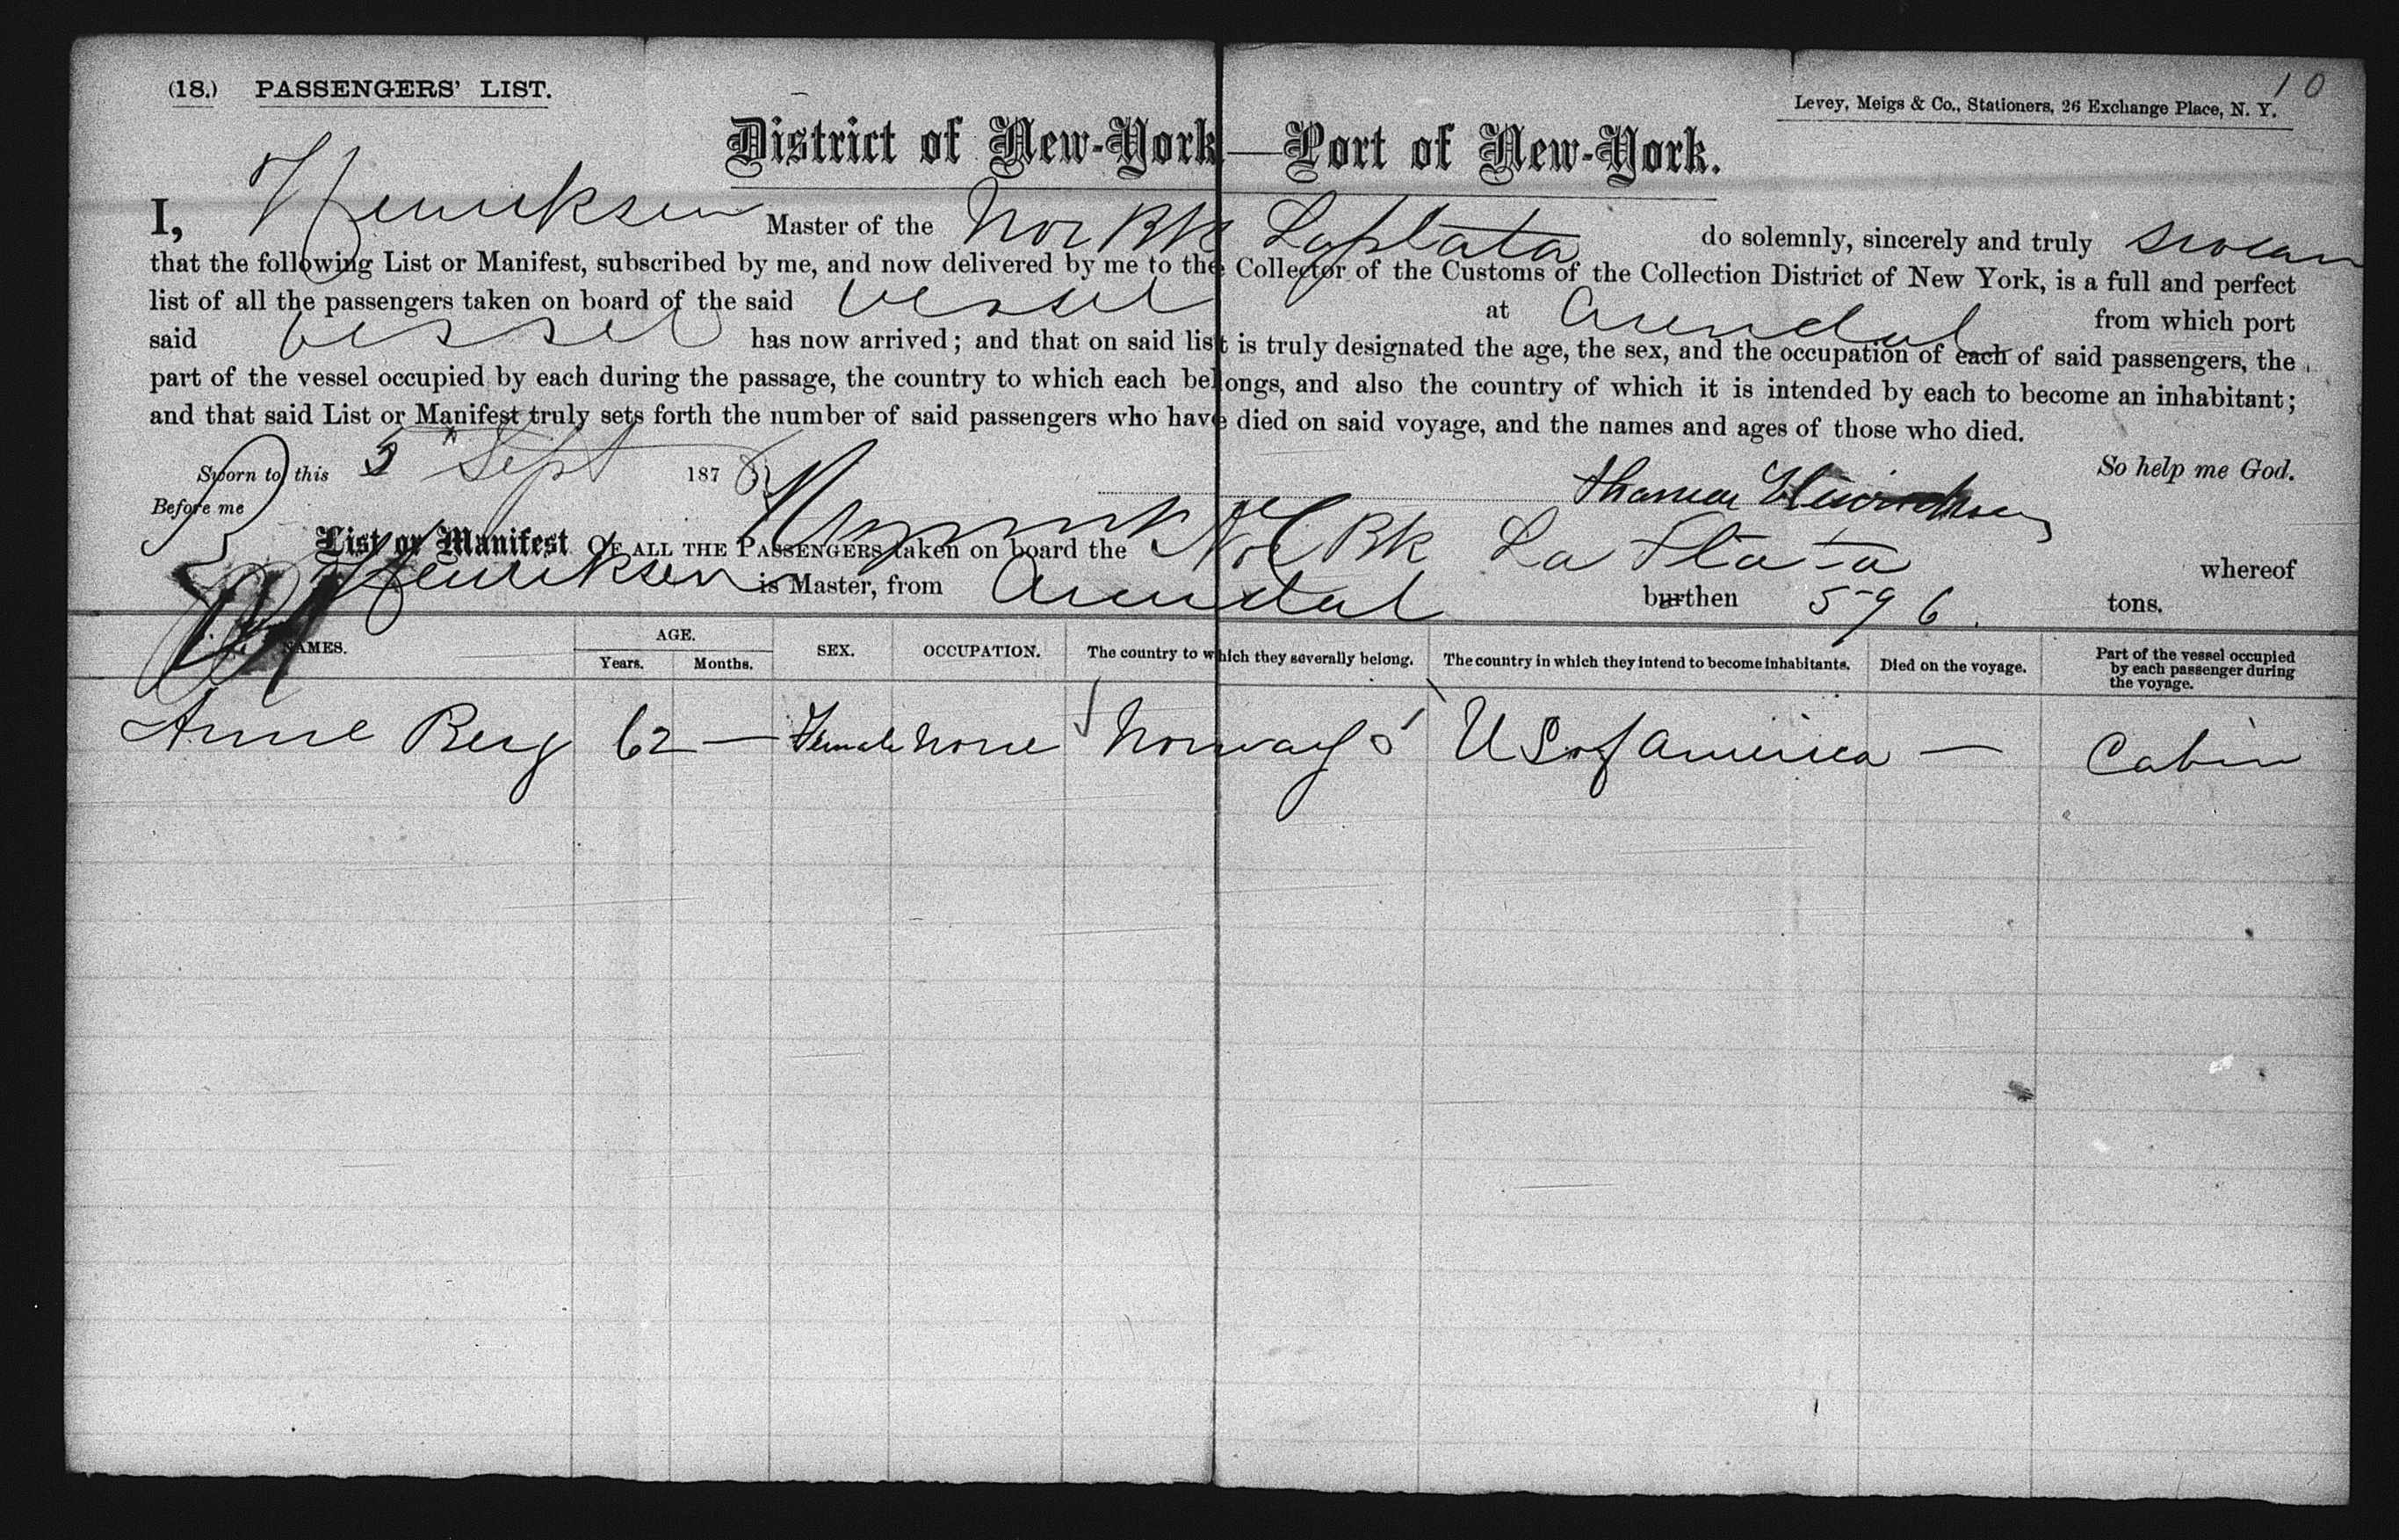 10
(18.) PASSENGERS' LIST.
Levey, Meigs & Co., Stationers, 26 Exchange Place, N. Y.
District of New-York—Port of New-York.
I, Henriksen Master of the Nor Bk Laplata do solemnly, sincerely and truly swear
that the following List or Manifest, subscribed by me, and now delivered by me to the Collector of the Customs of the Collection District of New York, is a full and perfect
list of all the passengers taken on board of the said vessel at Arendal from which port
said vessel has now arrived; and that on said list is truly designated the age, the sex, and the occupation of each of said passengers, the
part of the vessel occupied by each during the passage, the country to which each belongs, and also the country of which it is intended by each to become an inhabitant;
and that said List or Manifest truly sets forth the number of said passengers who have died on said voyage, and the names and ages of those who died.
Sworn to this 5 Sept 1878 So help me God.
Before me Thomas Henriksen
List or Manifest OF ALL THE PASSENGERS taken on board the Nor Bk La Plata whereof
Henriksen is Master, from Arendal burthen 596. tons.
NAMES. AGE. Years. Months. SEX. OCCUPATION. The country to which they severally belong. The country in which they intend to become inhabitants. Died on the voyage. Part of the vessel occupied by each passenger during the voyage.
Anne Berg 62 — Female None Norway US of America — Cabin